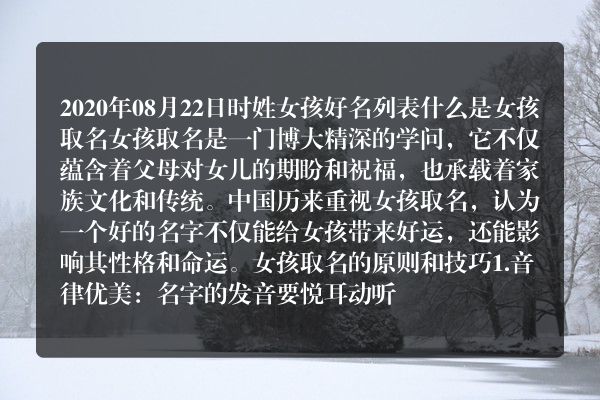 2020年08月22日时姓女孩好名列表什么是女孩
取名女孩取名是一门博大精深的学问，它不仅
蕴含着父母对女儿的期盼和祝福，也承载着家
族文化和传统。中国历来重视女孩取名，认为
一个好的名字不仅能给女孩带来好运，还能影
响其性格和命运。女孩取名的原则和技巧1.音
律优美：名字的发音要悦耳动听